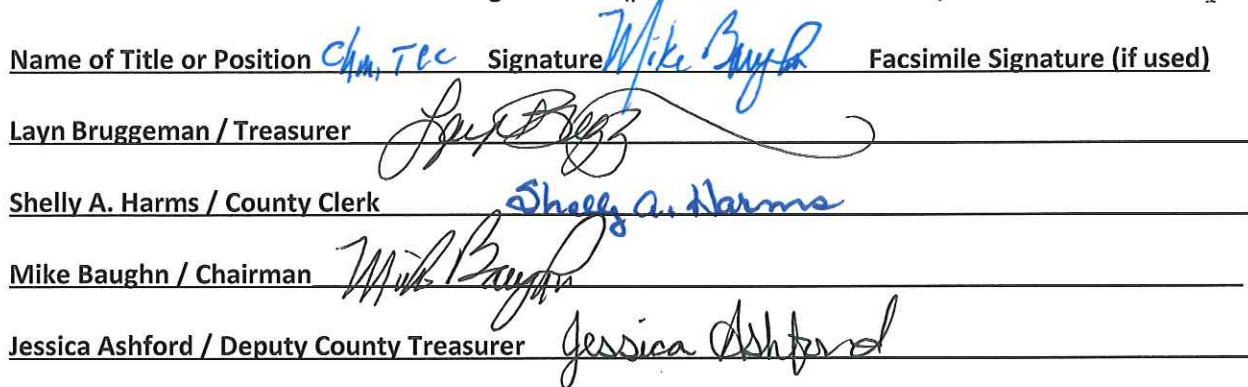 Name of Title or Position Chm, TCC Signature Mike Baughn Facsimile Signature (if used)
Layn Bruggeman / Treasurer
Shelly A. Harms / County Clerk Shelly A. Harms
Mike Baughn / Chairman Mike Baughn
Jessica Ashford / Deputy County Treasurer Jessica Ashford